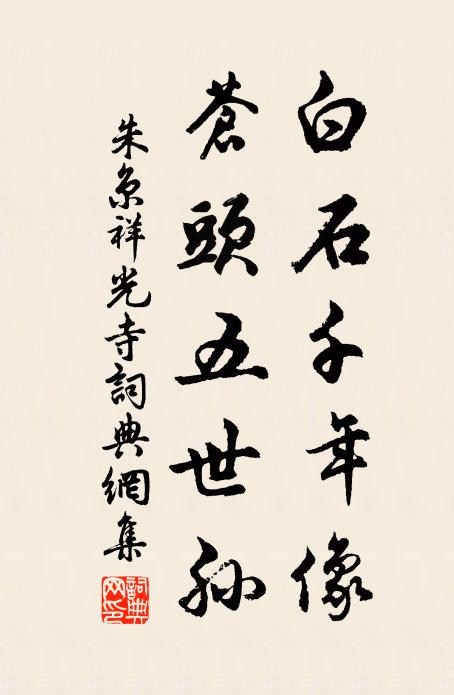 白石千年像
蒼頭五世孫
朱京祥光寺詞典網集
詞典网印